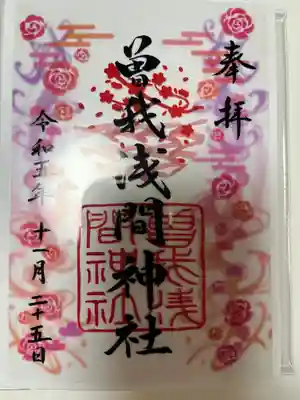 奉拝
曽我浅間神社
曽我浅間神社
令和五年 十一月二十五日